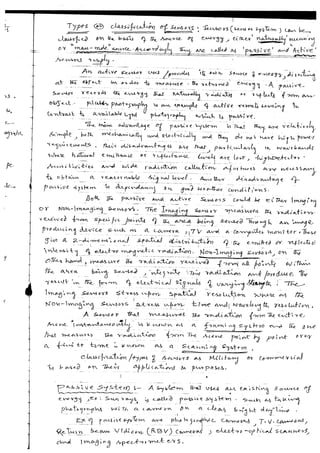 Types & classification of Sensors: Sensors (sensor system) can be
classified on the basis of the source of energy, either naturally occurring
or "man-made" source. Accordingly they are called as 'passive' and 'Active'
Sensors
An active sensor uses / provides its own source of energy, directing
at the object in order to measure the returned energy. A passive
sensor records the energy that naturally radiates or reflects from an
object. photography is an example of active remote sensing in
contrast to available light photography which is passive.
The main advantage of passive system is that they are relatively
Simple, both mechanically and electrically and they do not have high power
requirements. Their disadvantages are that particularly in wavebands
where natural emittance or reflectance levels are low, high detector
sensitivities and wide radiation collection apertures are necessary
to obtain a reasonable signal level. Another disadvantage of
passive system is dependency on good weather conditions.
Both the passive and active Sensors could be either Imaging
or Non-Imaging Sensors. The Imaging Sensor measures the radiations
received from specific points of the area being sensed through an image
producing device such as a camera, TV and a computer monitor. These
give a 2-dimensional spatial distribution of the emitted or reflected
intensity of electromagnetic radiation. Non-Imaging Sensors, on the
other hand, measure the radiation received from all points within
the area being sensed, integrate this radiation and produce the
result in the form of electrical signals of varying strength. The
Imaging Sensors stress upon spatial resolution where as the
Non-Imaging Sensors stress upon time and resolution.
A Sensor that measures the radiation from the entire
scene instantaneously is known as a framing system and the one
that measures the radiation from the scene point by point over
a finite time is known as a Scanning System.
Classification/types of Sensors as Military or commercial
is based on their applications & purposes.
Passive System:- A system that uses an existing source of
energy, ex: Sun rays is called passive system. Such as taking
photographs with a camera on a clear bright day time.
Ex of passive system are photographic cameras, T.V. cameras,
Return beam Vidicon (RBV) cameras, electro-optical scanners,
and Imaging spectrometers.